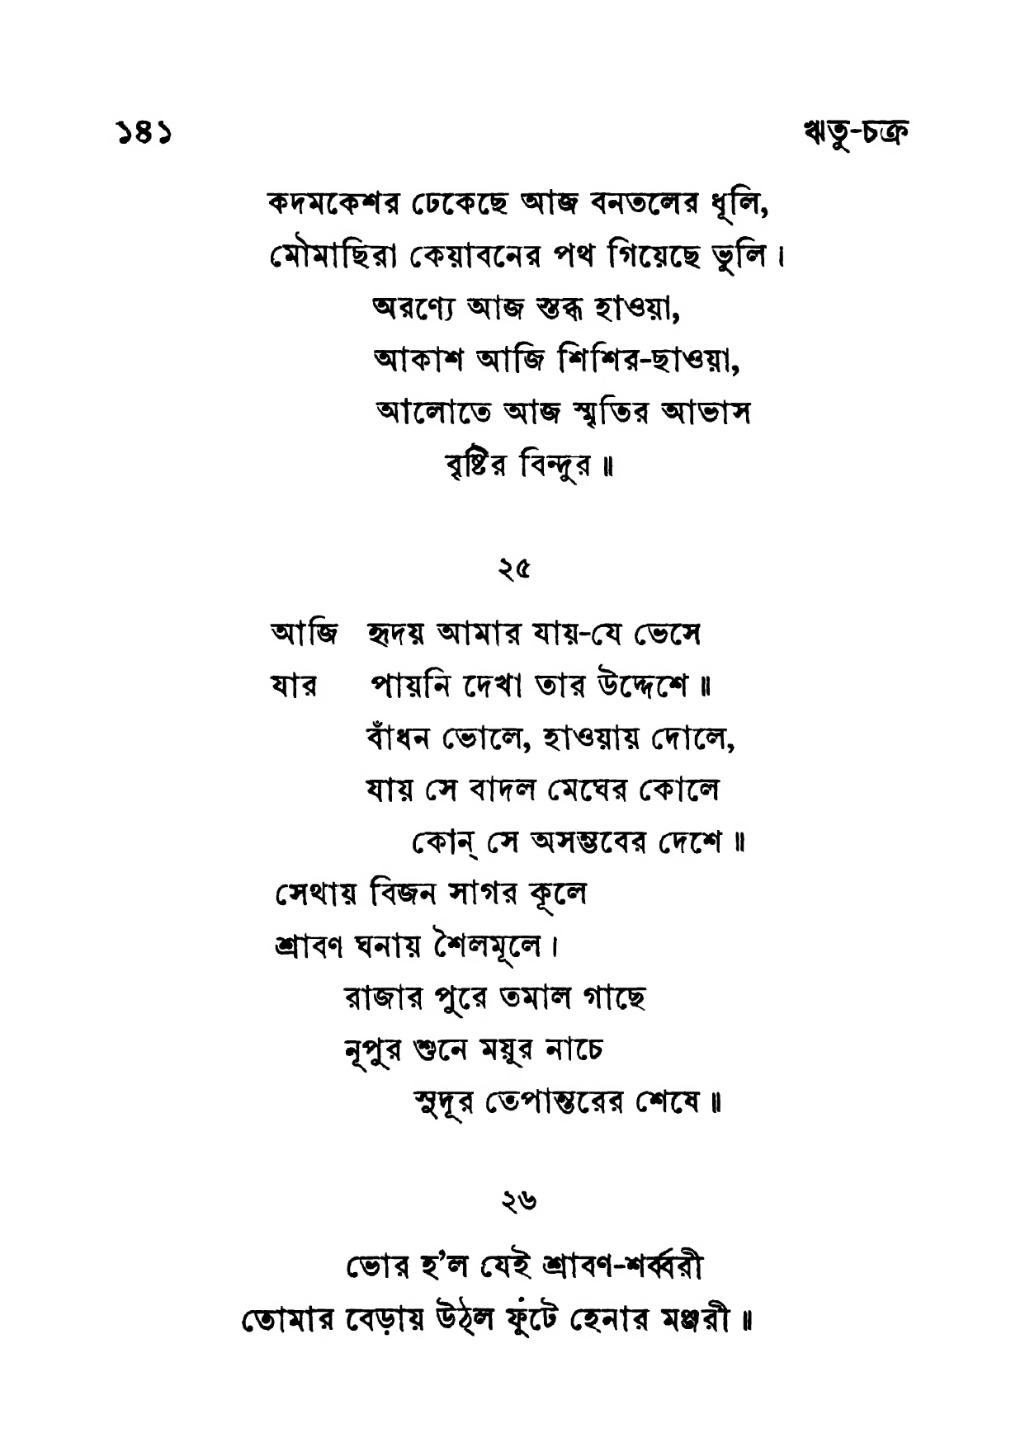 ১৪১ ঋতু-চক্র
কদমকেশর ঢেকেছে আজ বনতলের ধূলি,
মৌমাছিরা কেয়াবনের পথ গিয়েছে ভুলি।
অরণ্যে আজ স্তব্ধ হাওয়া,
আকাশ আজি শিশির-ছাওয়া,
আলোতে আজ স্মৃতির আভাস
বৃষ্টির বিন্দুর॥
২৫
আজি হৃদয় আমার যায়-যে ভেসে
যার পায়নি দেখা তার উদ্দেশে॥
বাঁধন ভোলে, হাওয়ায় দোলে,
যায় সে বাদল মেঘের কোলে
কোন্ সে অসম্ভবের দেশে॥
সেথায় বিজন সাগর কূলে
শ্রাবণ ঘনায় শৈলমূলে।
রাজার পুরে তমাল গাছে
নূপুর শুনে ময়ূর নাচে
সুদূর তেপান্তরের শেষে॥
২৬
ভোর হ'ল যেই শ্রাবণ-শর্ব্বরী
তোমার বেড়ায় উঠ্‌ল ফুটে হেনার মঞ্জরী॥